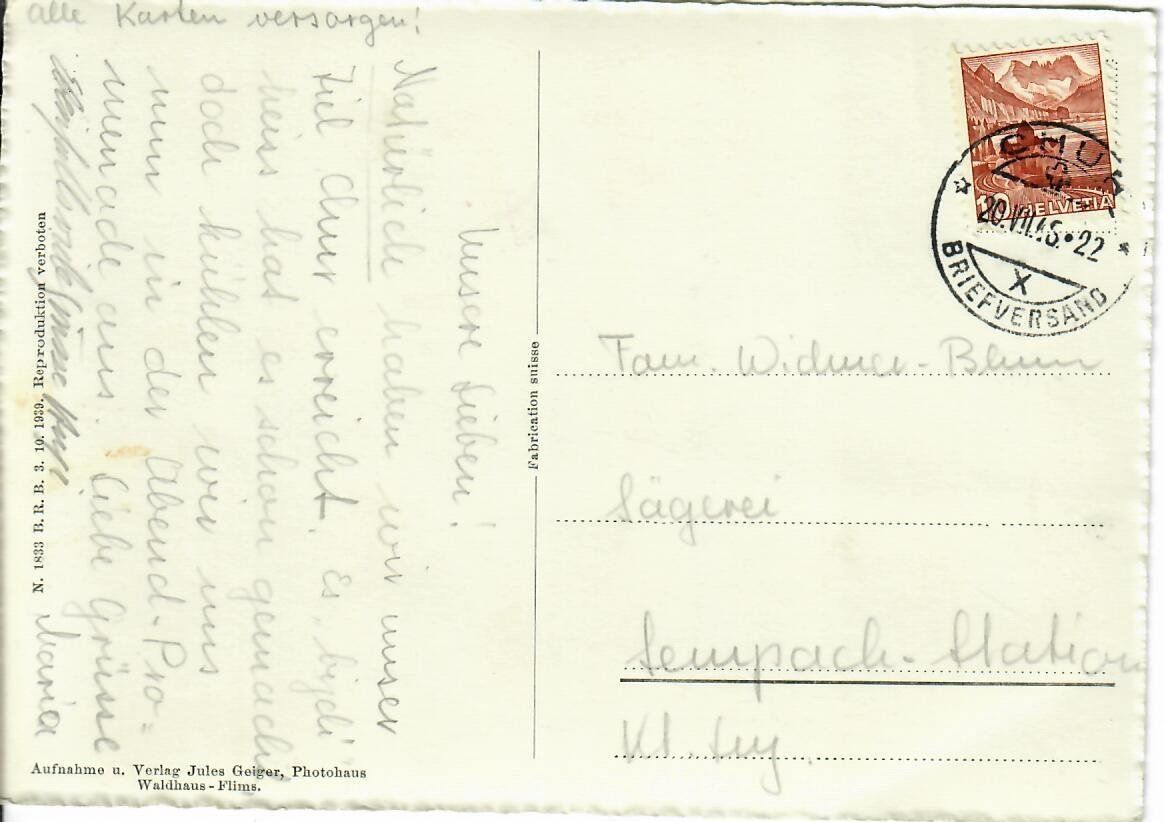 alle Karten versorgen!
Unsere Lieben!
Natürlich haben wir unser
Ziel Chur erreicht. Es
heiss hat es schon
doch kühlen wir uns
nun in der Abend-Pro-
menade aus. Liebe Grüsse
Maria
N. 1833 B. R. B. 3. 10. 1939. Reproduktion verboten
Aufnahme u. Verlag Jules Geiger, Photohaus
Waldhaus-Flims.
Fabrication suisse
10 HELVETIA
CHUR
20.VII.46•22
X
BRIEFVERSAND
Fam. Widmer-Blum
Sägerei
Sempach-Station
Kt. Luz.